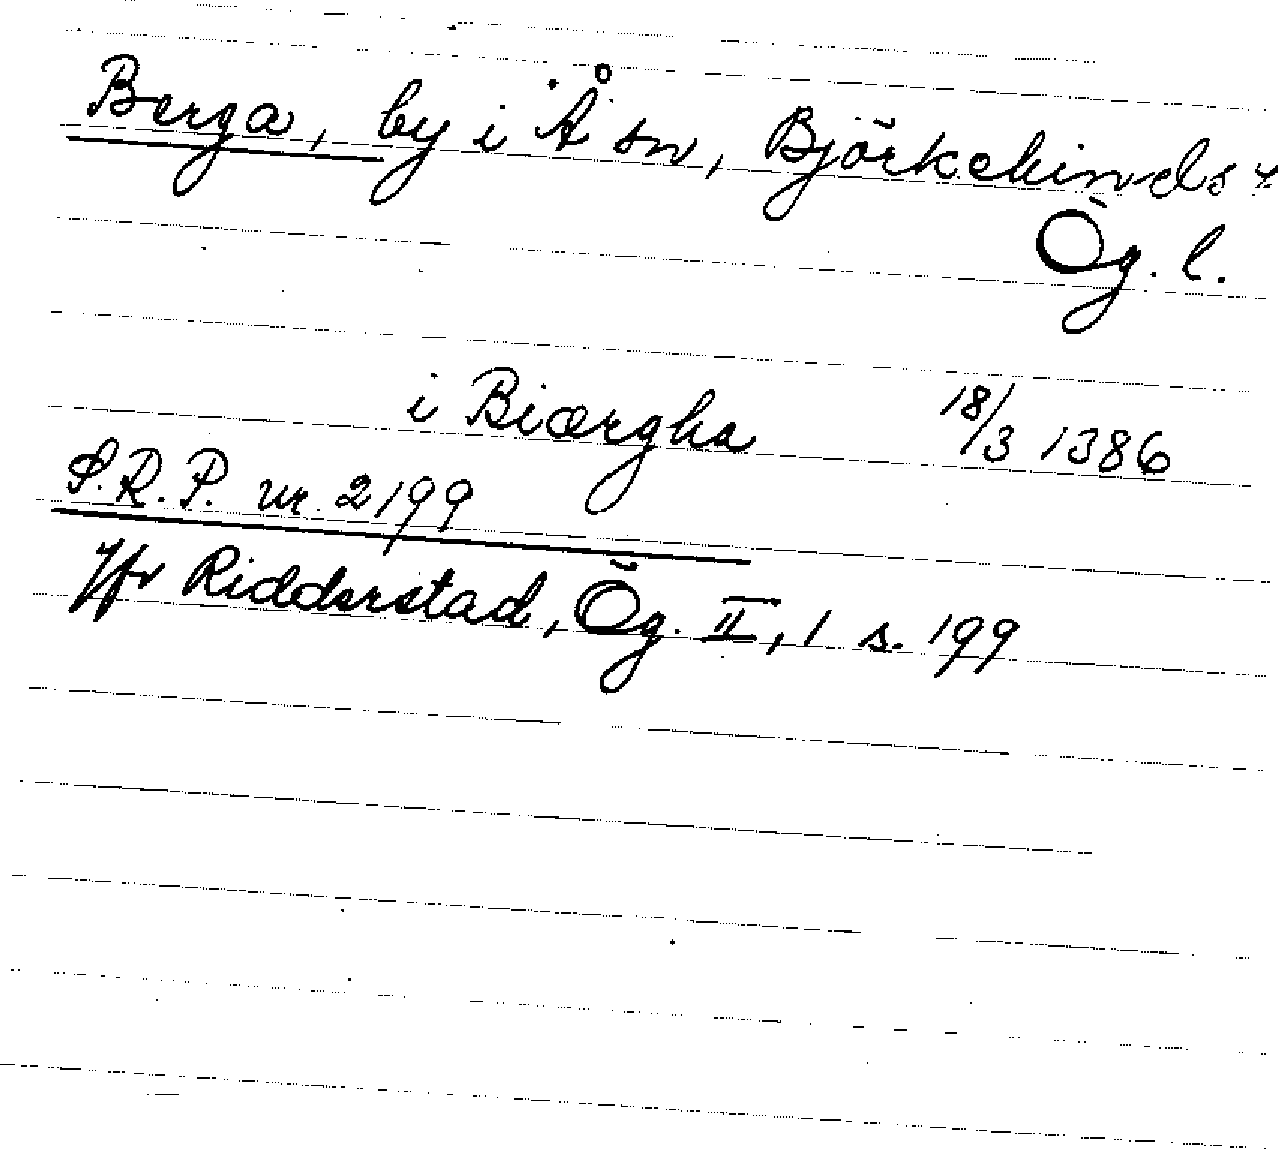 Berga, by i Å sn, Björkekinds
Ög. l.
i Biærgha 18/3 1386
S.R.P. nr. 2199
Jfr Ridderstad, Ög. II, 1 s. 199